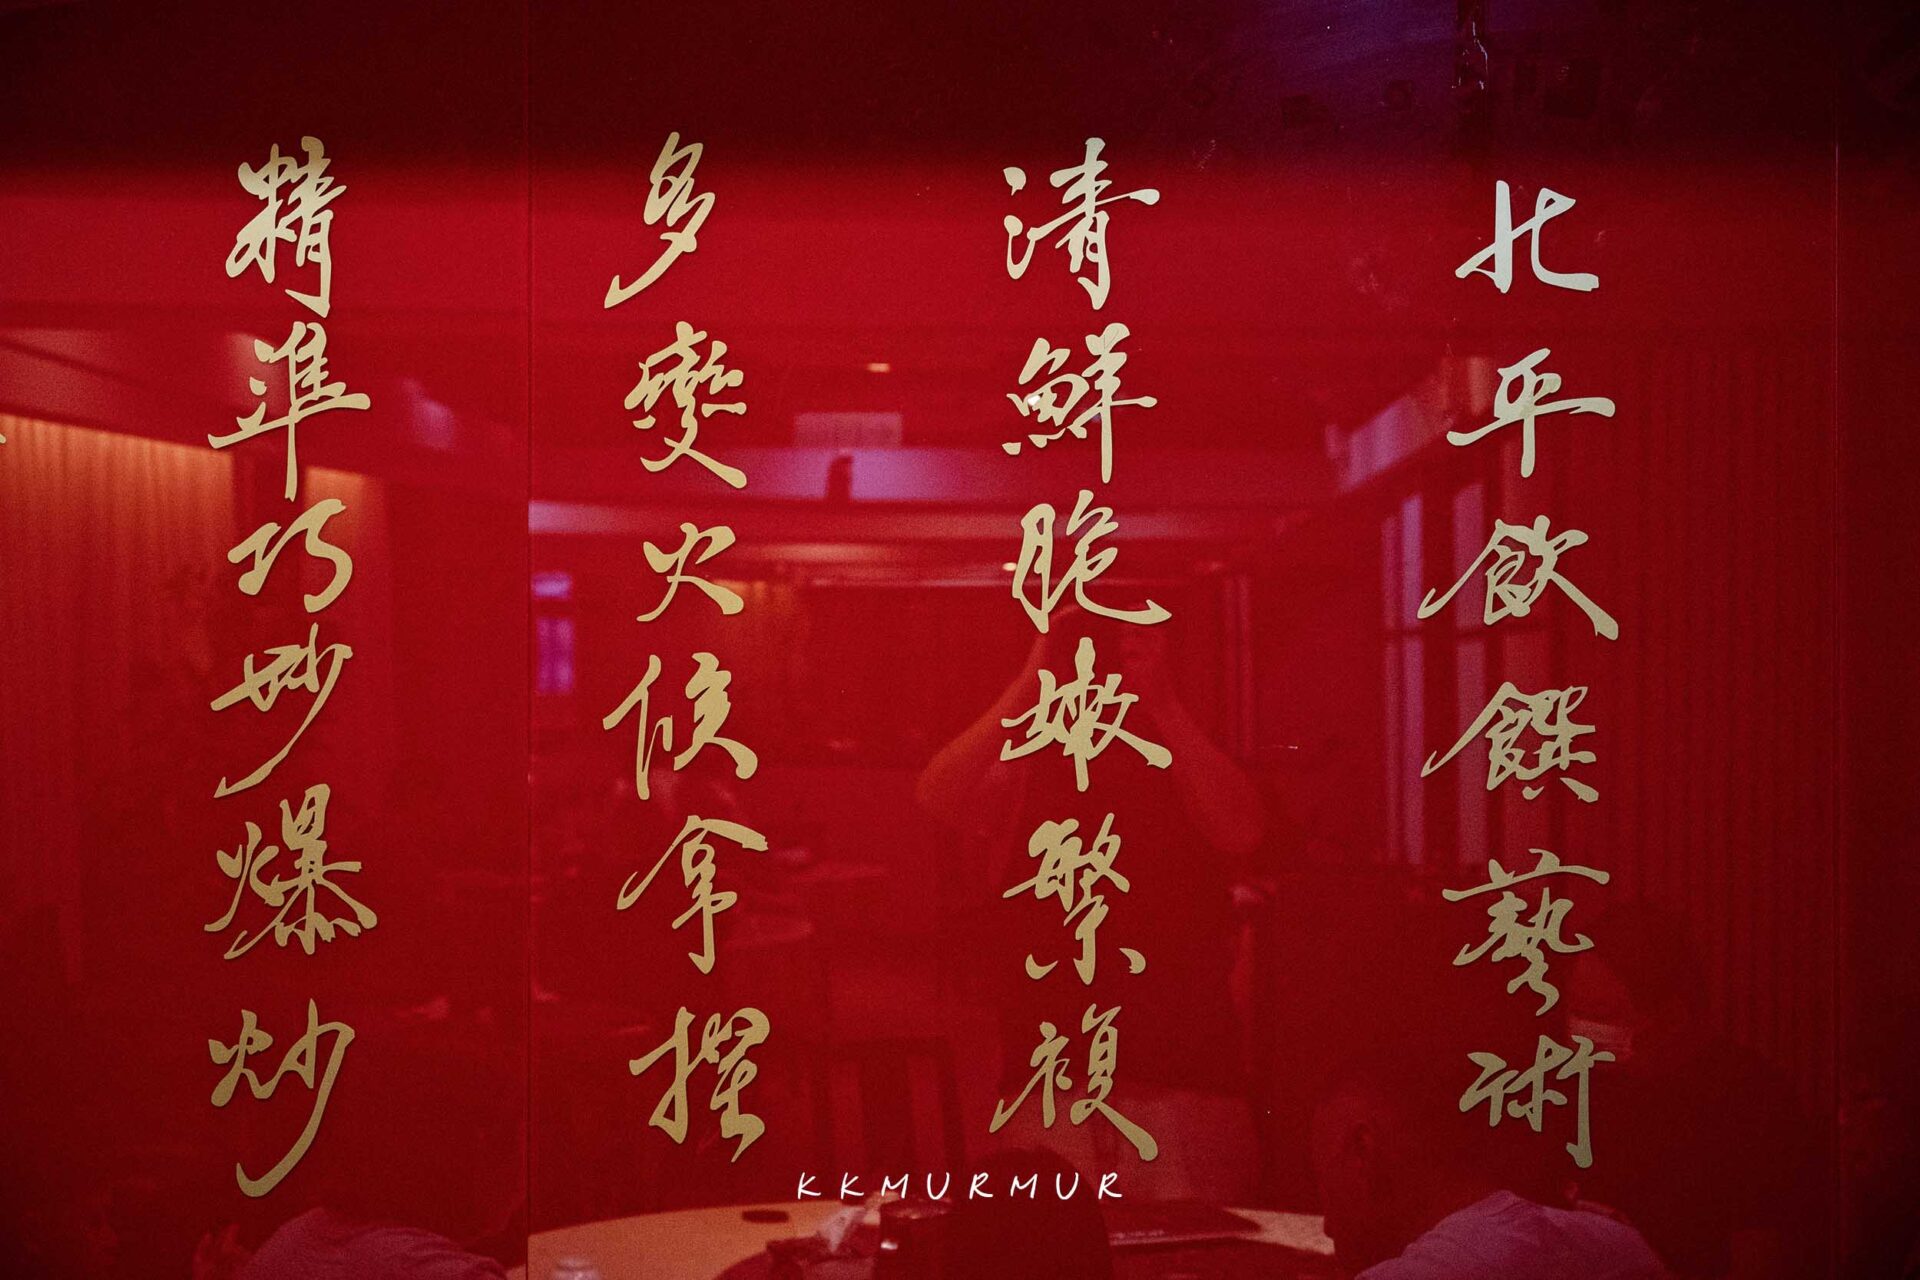 北平飲饌藝術
清鮮脆嫩繁複
多變火候拿捏
精準巧妙爆炒
KKMURMUR